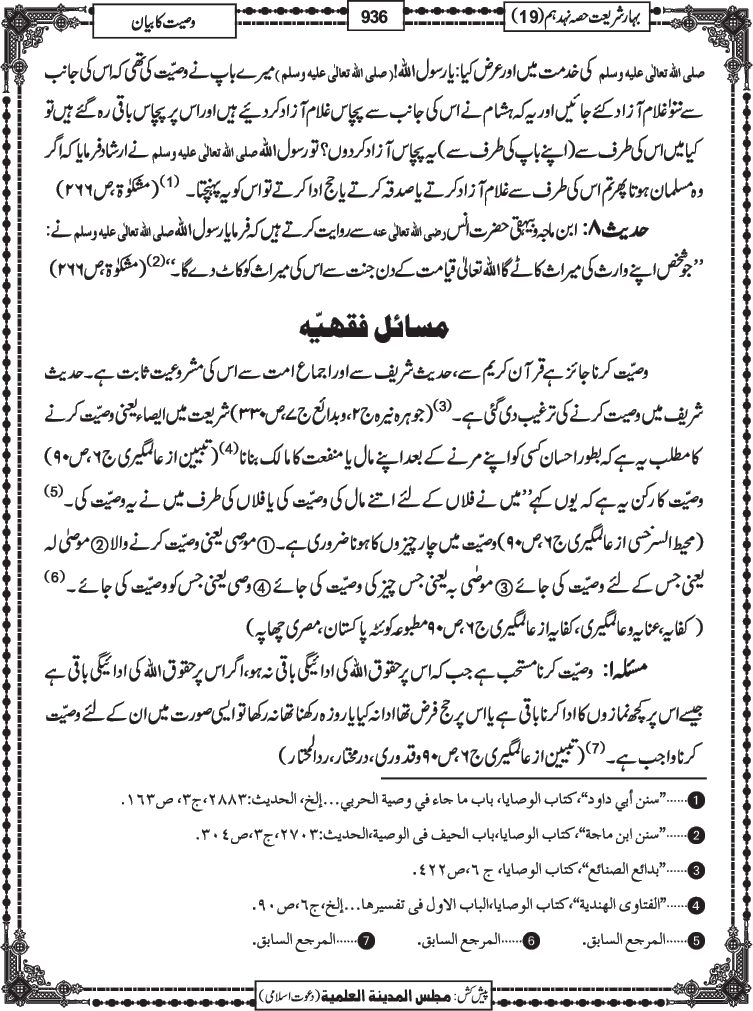 بہار شریعت حصہ نہدہم (19)
936
وصیت کا بیان
صلی اللہ تعالیٰ علیہ وسلم کی خدمت میں اور عرض کیا: یارسول اللہ! (صلی اللہ تعالیٰ علیہ وسلم) میرے باپ نے وصیّت کی تھی کہ اس کی جانب
سے سَو غلام آزاد کئے جائیں اور یہ کہ ہشام نے اس کی جانب سے پچاس غلام آزاد کر دیئے ہیں اور اس پر پچاس باقی رہ گئے ہیں تو
کیا میں اس کی طرف سے (اپنے باپ کی طرف سے) یہ پچاس آزاد کر دوں؟ تو رسول اللہ صلی اللہ تعالیٰ علیہ وسلم نے ارشاد فرمایا کہ اگر
وہ مسلمان ہوتا پھر تم اس کی طرف سے غلام آزاد کرتے یا صدقہ کرتے یا حج ادا کرتے تو اس کو یہ پہنچتا۔ (1) (مشکوٰۃ، ص ۲۶۶)
حدیث ۸: ابن ماجہ و بیہقی حضرت انس رضی اللہ تعالیٰ عنہ سے روایت کرتے ہیں کہ فرمایا رسول اللہ صلی اللہ تعالیٰ علیہ وسلم نے:
’’جو شخص اپنے وارث کی میراث کاٹے گا اللہ تعالیٰ قیامت کے دن جنت سے اس کی میراث کو کاٹ دے گا۔‘‘ (2) (مشکوٰۃ، ص ۲۶۶)
مسائل فقھیّہ
وصیّت کرنا جائز ہے قرآن کریم سے، حدیث شریف سے اور اجماع امت سے اس کی مشروعیت ثابت ہے۔ حدیث
شریف میں وصیّت کرنے کی ترغیب دی گئی ہے۔ (3) (جوہرہ نیرہ ج۲، و بدائع ج۷، ص ۳۳۰) شریعت میں ایصاء یعنی وصیّت کرنے
کا مطلب یہ ہے کہ بطور احسان کسی کو اپنے مرنے کے بعد اپنے مال یا منفعت کا مالک بنانا (4) (تبیین از عالمگیری ج۶، ص ۹۰)
وصیّت کا رکن یہ ہے کہ یوں کہے ’’میں نے فلاں کے لئے اتنے مال کی وصیّت کی یا فلاں کی طرف میں نے یہ وصیّت کی۔ (5)
(محیط السرخسی از عالمگیری ج۶، ص ۹۰) وصیّت میں چار چیزوں کا ہونا ضروری ہے۔ ① موصِی یعنی وصیّت کرنے والا ② موصٰی لہ
یعنی جس کے لئے وصیّت کی جائے ③ موصٰی بہ یعنی جس چیز کی وصیّت کی جائے ④ وصی یعنی جس کو وصیّت کی جائے۔ (6)
(کفایہ، عنایہ و عالمگیری، کفایہ از عالمگیری ج۶، ص ۹۰ مطبوعہ کوئٹہ پاکستان، مصری چھاپہ)
مسئلہ ۱: وصیّت کرنا مستحب ہے جب کہ اس پر حقوق اللہ کی ادائیگی باقی نہ ہو، اگر اس پر حقوق اللہ کی ادائیگی باقی ہے
جیسے اس پر کچھ نمازوں کا ادا کرنا باقی ہے یا اس پر حج فرض تھا ادا نہ کیا یا روزہ رکھنا تھا نہ رکھا تو ایسی صورت میں ان کے لئے وصیّت
کرنا واجب ہے۔ (7) (تبیین از عالمگیری ج۶، ص ۹۰ و قدوری، درمختار، ردالمحتار)
1......"سنن أبي داود"، كتاب الوصايا، باب ما جاء في وصية الحربي...إلخ، الحديث:٢٨٨٣، ج٣، ص١٦٣.
2......"سنن ابن ماجة"، كتاب الوصايا، باب الحيف في الوصية، الحديث:٢٧٠٣، ج٣، ص٣٠٤.
3......"بدائع الصنائع"، كتاب الوصايا، ج ٦، ص٤٢٢.
4......"الفتاوى الهندية"، كتاب الوصايا، الباب الاول في تفسيرها...إلخ، ج٦، ص٩٠.
5......المرجع السابق. 6......المرجع السابق. 7......المرجع السابق.
پیش کش: مجلس المدینۃ العلمیۃ (دعوت اسلامی)